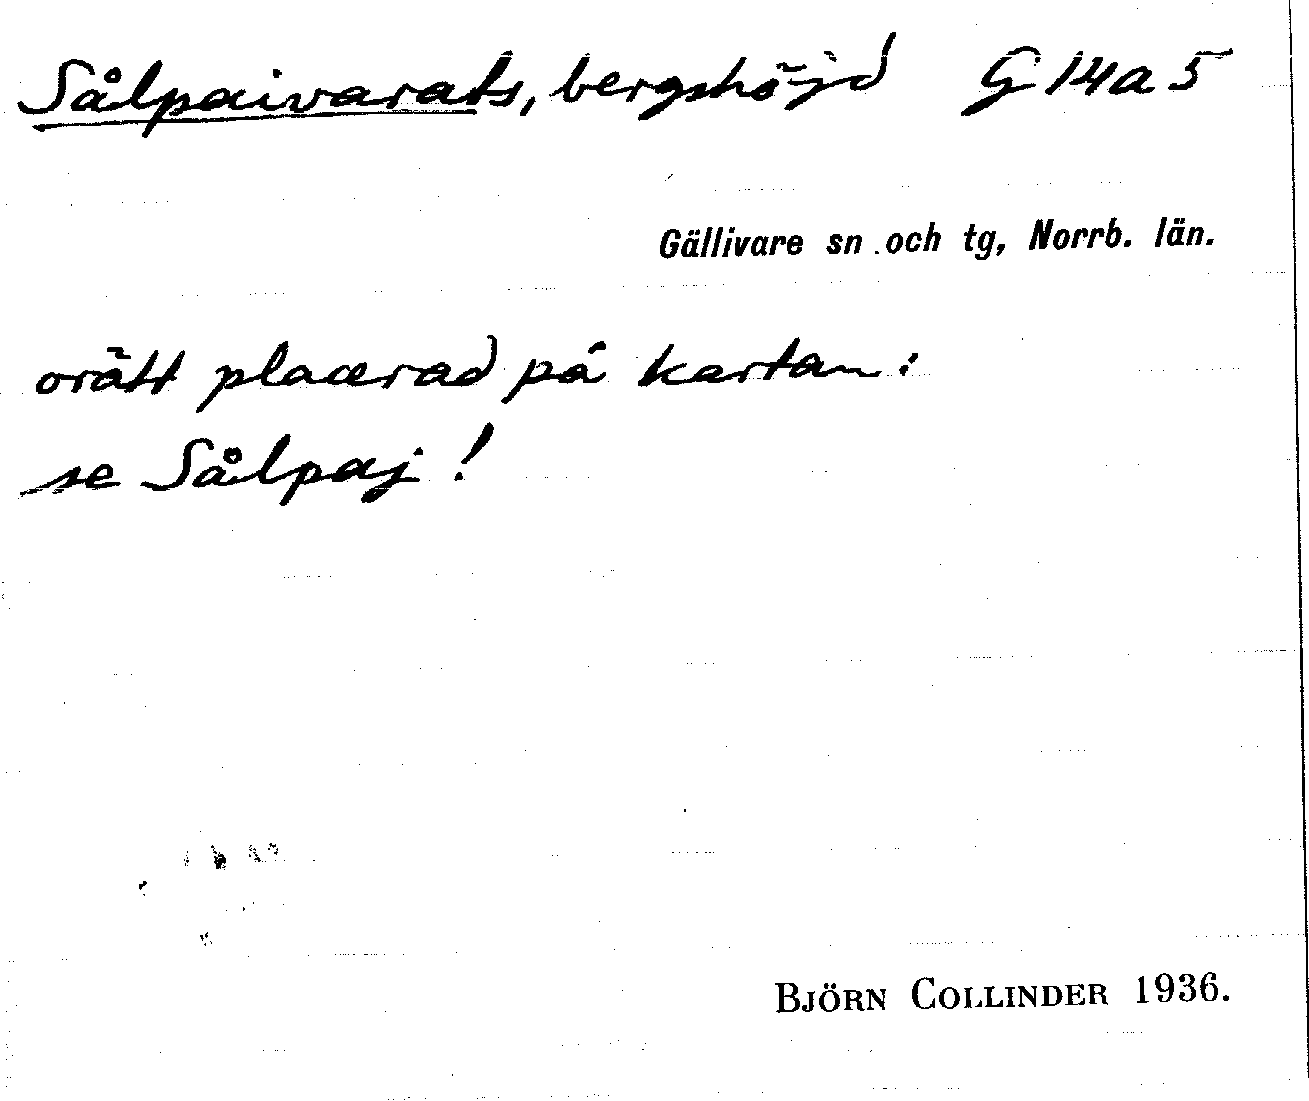 Sålpaivarats, bergshöjd G 14a 5
Gällivare sn och tg, Norrb. län.
orätt placerad på kartan:
se Sålpaj!
BJÖRN COLLINDER 1936.